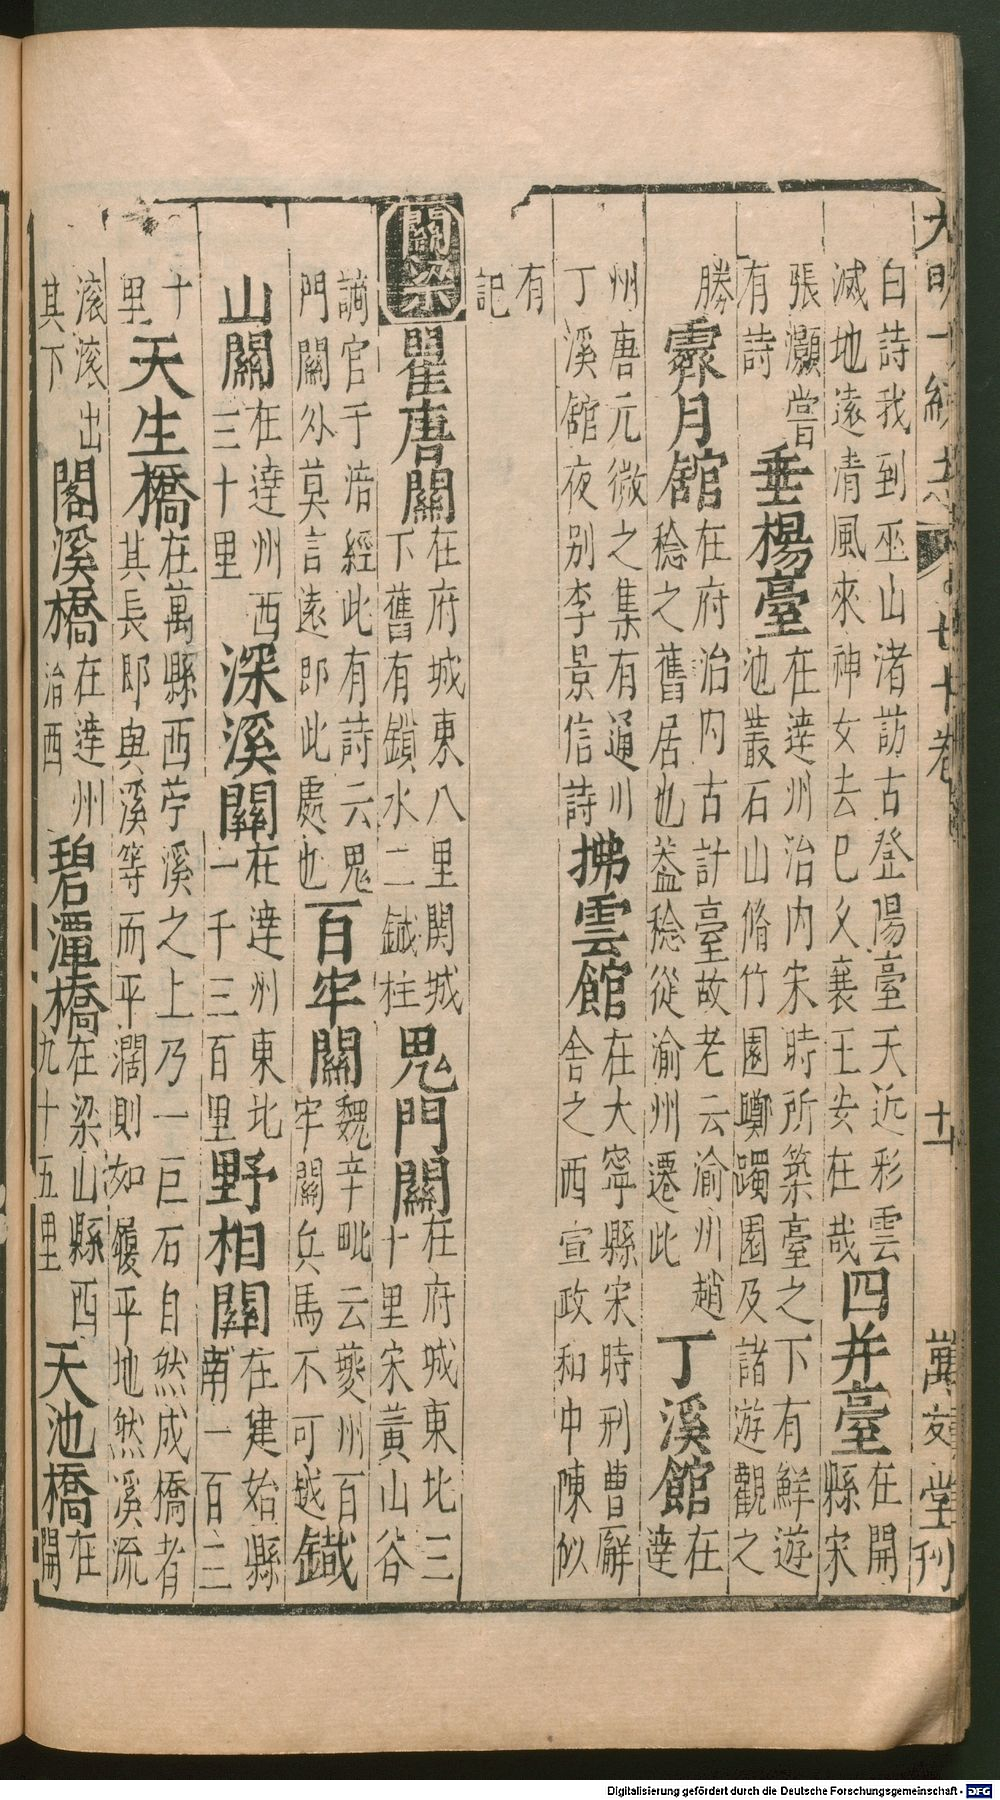 大明一統志 七十卷 十一 萬壽堂刊
白詩我到巫山渚訪古登陽臺天近彩雲
滅地遠清風來神女去已久襄王安在哉
四并臺
在開
縣宋
張灝嘗
有詩
垂楊臺
在達州治内宋時所築臺之下有鮮遊
池叢石山脩竹園躑躅園及諸遊觀之
勝
霽月館
在府治内古計臺故老云渝州趙
稔之舊居也蓋稔從渝州遷此
丁溪館
在
達
州唐元微之集有通川
丁溪舘夜别李景信詩
拂雲館
在大寧縣宋時刑曹廨
舍之西宣政和中陳似
有
記
關梁
瞿唐關
在府城東八里関城
下舊有鎖水二鐵柱
鬼門關
在府城東北三
十里宋黃山谷
謫官于涪經此有詩云鬼
門關外莫言遠即此處也
百牢關
魏辛毗云夔州百
牢關兵馬不可越
鐵
山關
在達州西
三十里
深溪關
在達州東北
一千三百里
野相關
在建始縣
南一百二
十
里
天生橋
在萬縣西苧溪之上乃一巨石自然成橋者
其長即與溪等而平濶則如履平地然溪流
滚滚出
其下
閣溪橋
在達州
治西
碧潭橋
在梁山縣西
九十五里
天池橋
在
開
Digitalisierung gefördert durch die Deutsche Forschungsgemeinschaft - DFG